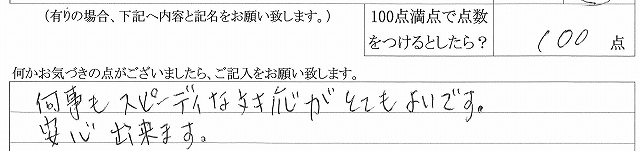 （有りの場合、下記へ内容と記名をお願い致します。）
100点満点で点数
をつけるとしたら？
100 点
何かお気づきの点がございましたら、ご記入をお願い致します。
何事もスピーディな対応がとてもよいです。
安心出来ます。